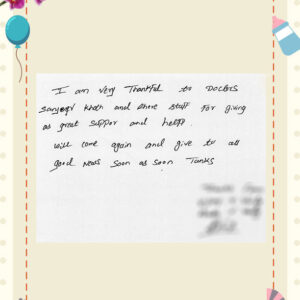 I am very Thankful to Doctors
Sanjeev Khoth and there staff for giving
as great suppor and helpp.
will come again and give to all
good News soon as soon Tanks